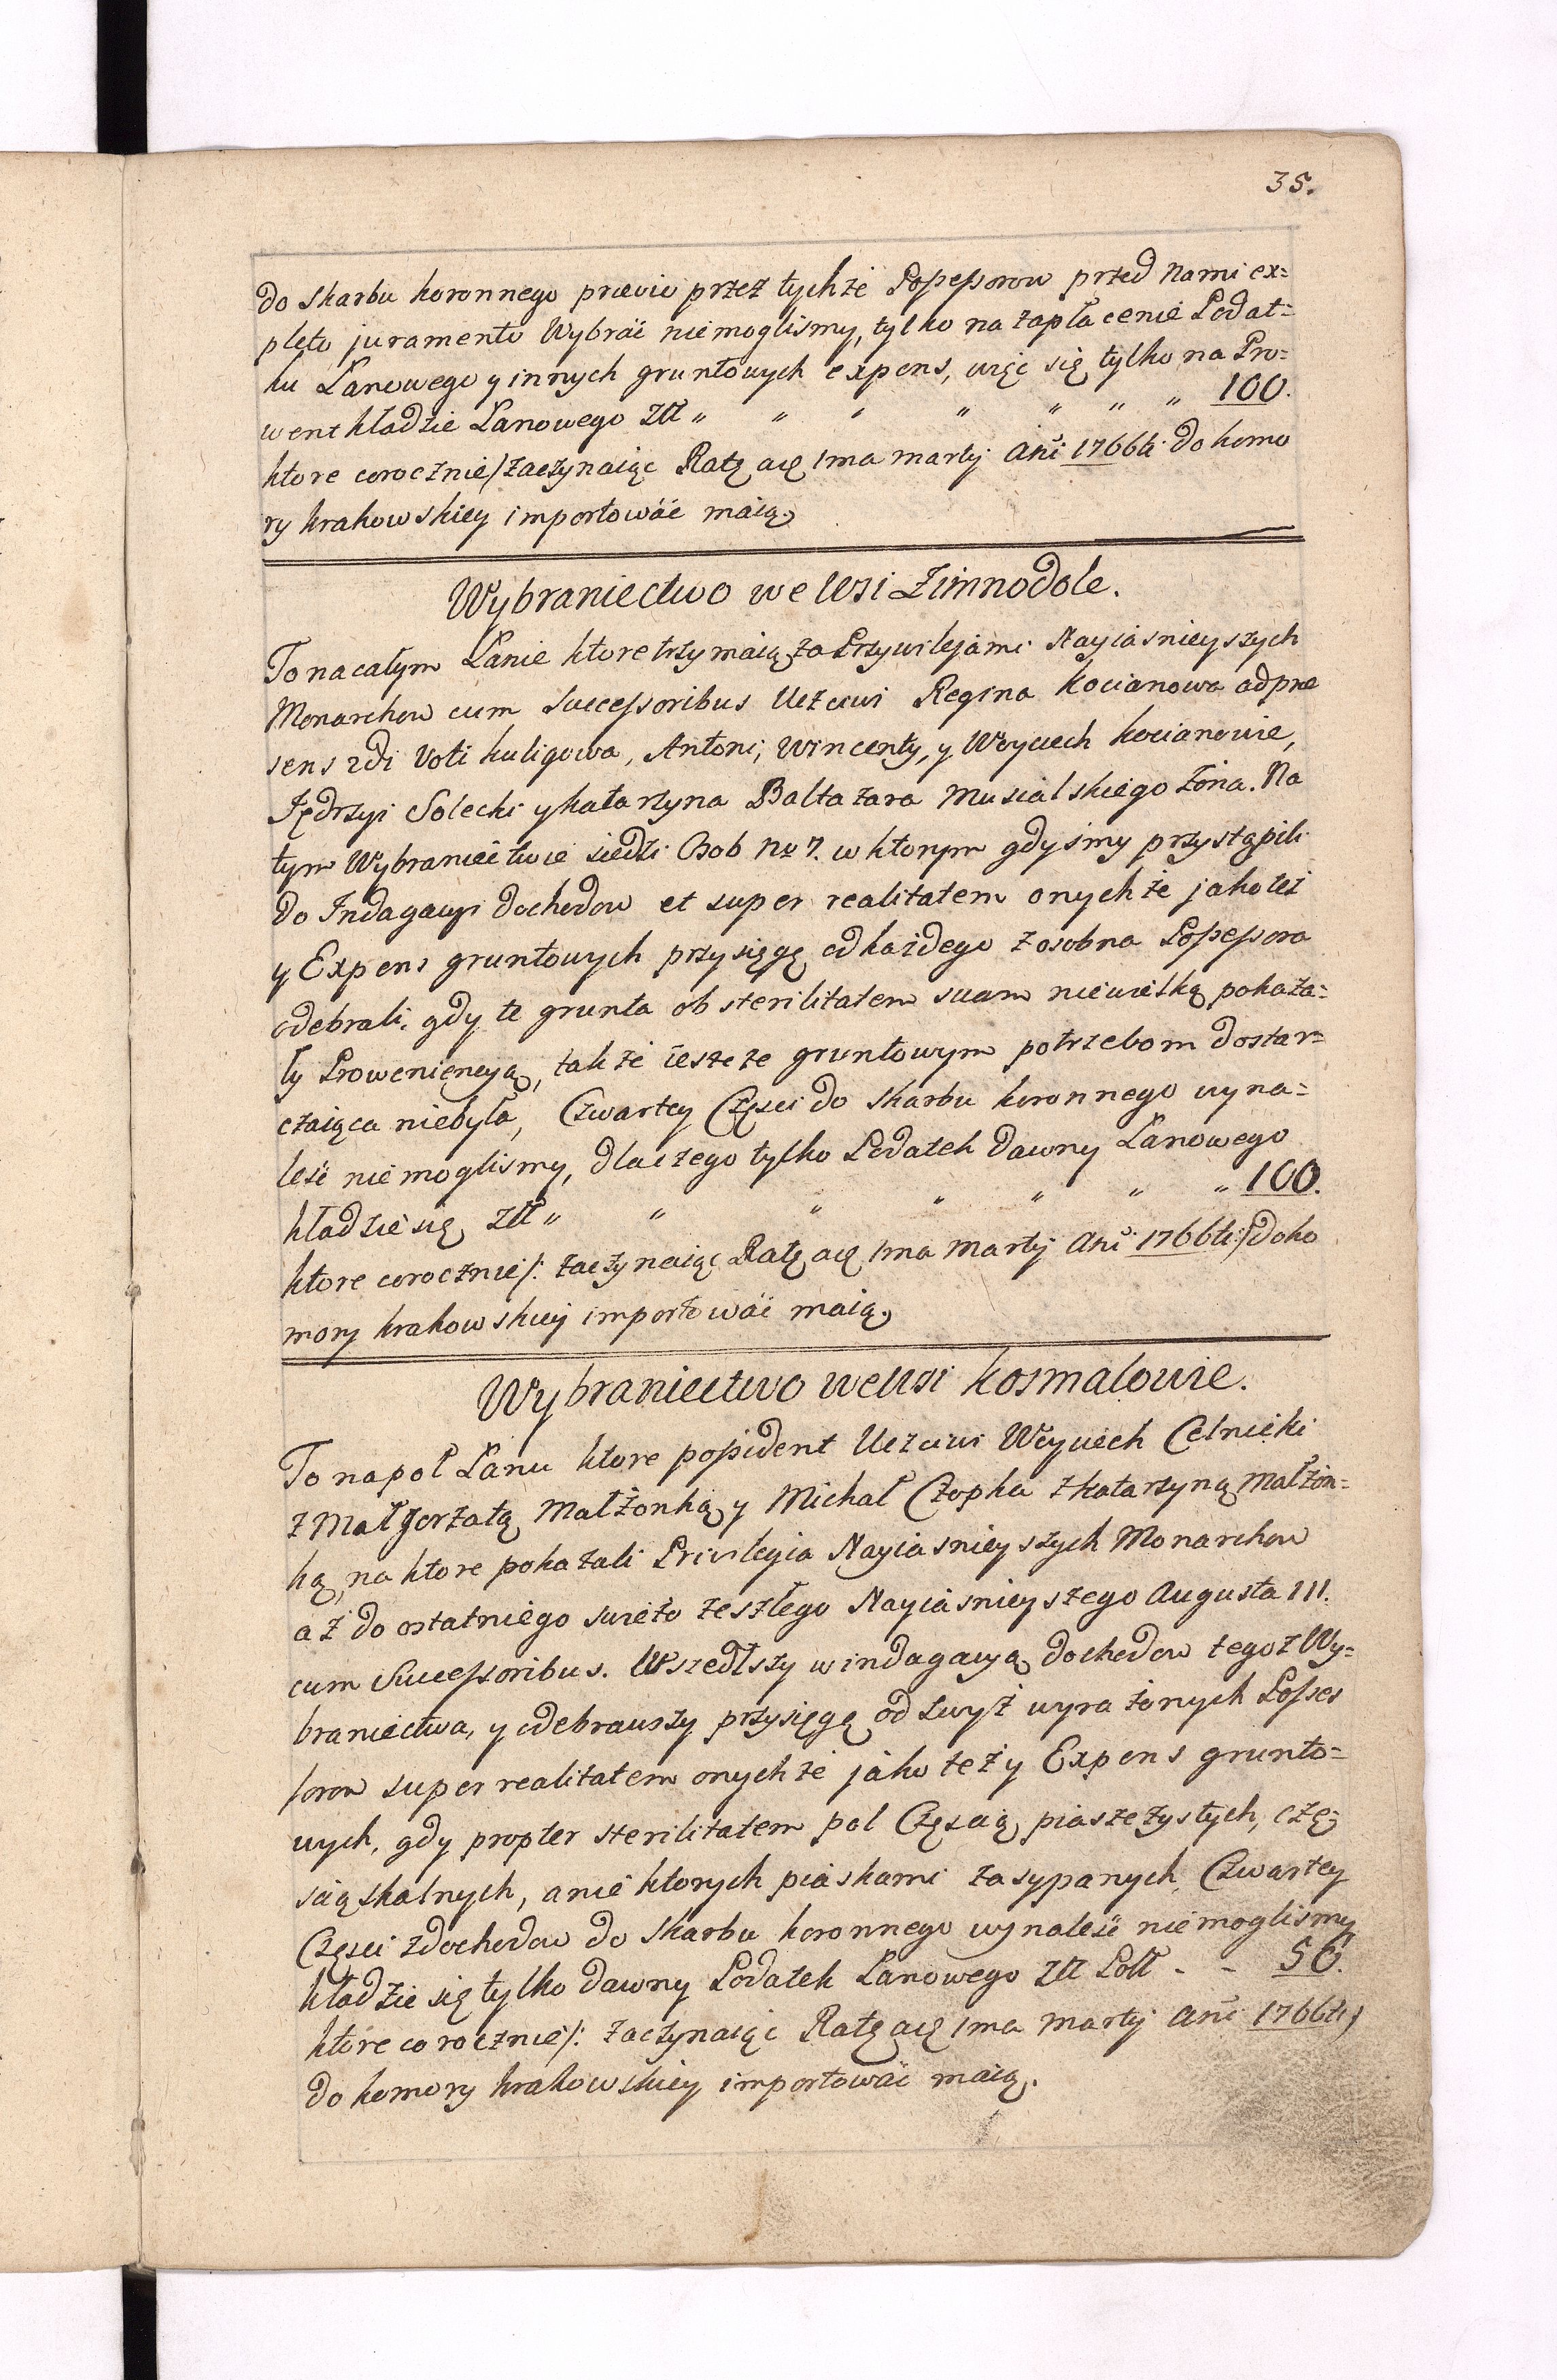 35.
do Skarbu koronnego prævio przez tychże Possessorow przed Nami ex=
pleto juramento Wybrać niemoglismy, tylko na zapłacenie Podat=
ku Łanowego y innych gruntowych expens, więc się tylko na Pro=
went kładzie Łanowego Złł „ „ „ „ „ „ „ 100.
ktore corocznie /zaczynaiąc Ratę a die 1ma martij Ani 1766ti do komo
ry krakowskiey importowáć maią.
Wybraniectwo we Wsi Zimnodole.
To na całym Łanie ktore trzymaią za Przywilejami Nayiasnieyszych
Monarchow cum Successoribus Uczciwi Regina Kocianowa ad præ
sens 2di Voti Kuligowa, Antoni, Wincenty, y Woyciech Kocianowie,
Jędrzyi Solecki y Katarzyna Baltazara Musialskiego Żona. Na
tym Wybraniectwie siedzi Osob Nro 7. w ktorym gdysmy przystąpili
do Indagacyi dochodow et super realitatem onychże jako też
y Expens gruntowych przysięgę od każdego zosobna Possessora
odebrali, gdy te grunta ob sterilitatem suam niewielką pokaza=
ły Prowenięncyą, tak że ieszcze gruntowym potrzebom dostar=
czaiąca niebyła, Czwartey Częsci do Skarbu koronnego wyna=
leść niemoglismy, dlaczego tylko Podatek dawny Łanowego
kładzie się Złł „ „ „ „ „ „ „ 100.
ktore corocznie /: zaczynaiąc Ratę a die 1ma Martij Ani 1766ti:/ do ko
mory krakowskiey importowáć maią.
Wybraniectwo we Wsi Kosmalowie.
To na poł Łanu ktore possident Uczciwi Woyciech Celnicki
z Małgorzatą Małżonką y Michał Czopka z Katarzyną Małżon=
ką, na ktore pokazali Privilegia Nayiasnieyszych Monarchow
aż do ostatniego swieżo zeszłego Nayiasnieyszego Augusta III.
cum Successoribus. Wszedłszy w indagacyą dochodow tegoż Wy=
braniectwa, y odebrawszy przysięgę od zwyż wyrażonych Posses
sorow super realitatem onychże jako też y Expens grunto=
wych, gdy propter sterilitatem pol Częscią piaszczystych, czę=
scią skalnych, a niektorych piaskami zasypanych, Czwartey
Częsci z dochodow do Skarbu koronnego wynaleść niemoglismy
kładzie się tylko dawny Podatek Łanowego Złł Poll - - 50.
ktore corocznie /: zaczynaiąc Ratę a die 1ma Martij Ani 1766ti /
do komory krakowskiey importowáć maią.